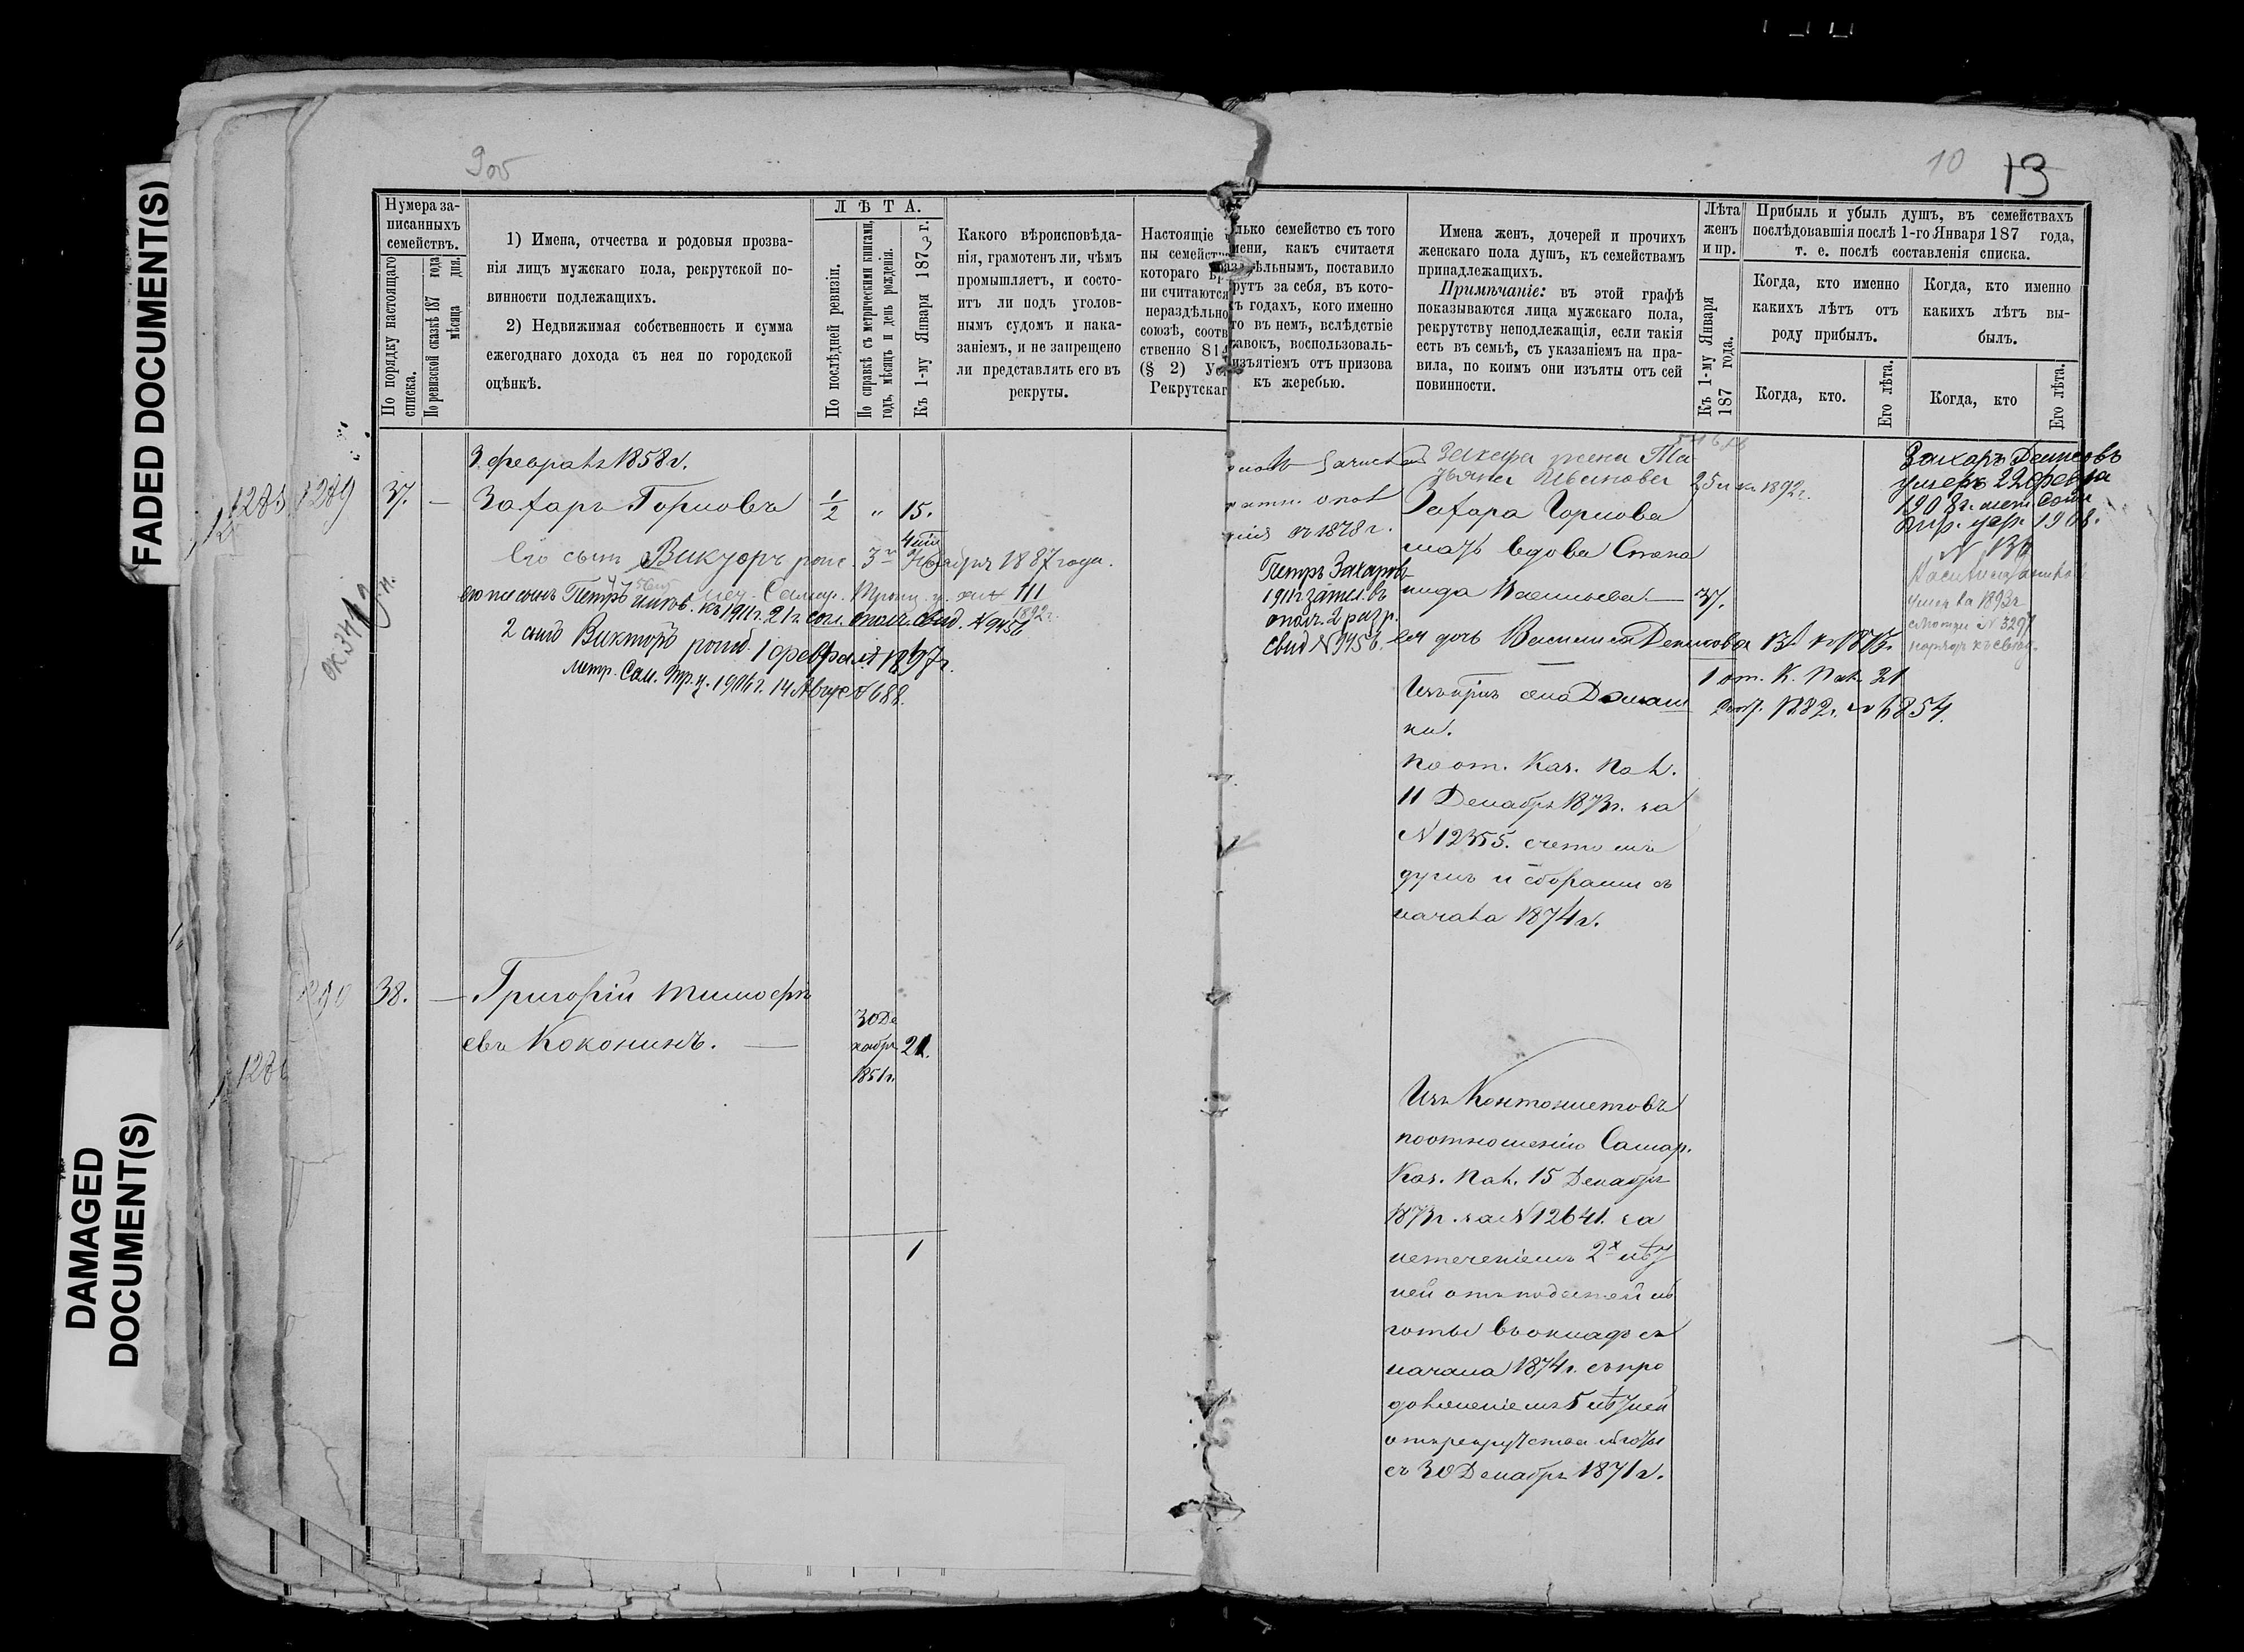 FADED DOCUMENT(S)
DAMAGED
DOCUMENT(S)
9об
10 13
Нумера за-
писанныхъ
семействъ.
По порядку настоящаго
списка.
По ревизской сказкѣ 187 года
мѣсяца дня.
1) Имена, отчества и родовыя прозва-
нія лицъ мужскаго пола, рекрутской по-
винности подлежащихъ.
2) Недвижимая собственность и сумма
ежегоднаго дохода съ нея по городской
оцѣнкѣ.
ЛѢТА.
По послѣдней ревизіи.
По справкѣ съ метрическими книгами,
годъ, мѣсяцъ и день рожденія.
Къ 1-му Января 1873 г.
Какого вѣроисповѣда-
нія, грамотенъ ли, чѣмъ
промышляетъ, и состо-
итъ ли подъ уголов-
нымъ судомъ и нака-
заніемъ, и не запрещено
ли представлять его въ
рекруты.
Настоящіе
ны семейств
котораго вр
ни считаются
нераздѣльно
союзѣ, соотв
ственно 81
(§ 2) Ус
Рекрутскаг
лько семейство съ того
мени, какъ считается
раздѣльнымъ, поставило
рутъ за себя, въ кото-
хъ годахъ, кого именно
то въ немъ, вслѣдствіе
тавокъ, воспользоваль-
изъятіемъ отъ призова
къ жеребью.
Имена женъ, дочерей и прочихъ
женскаго пола душъ, къ семействамъ
принадлежащихъ.
Примѣчаніе: въ этой графѣ
показываются лица мужскаго пола,
рекрутству неподлежащія, если такія
есть въ семьѣ, съ указаніемъ на пра-
вила, по коимъ они изъяты отъ сей
повинности.
Лѣта
женъ
и пр.
Къ 1-му Января
187 года.
Прибыль и убыль душъ, въ семействахъ
послѣдовавшія послѣ 1-го Января 187 года,
т. е. послѣ составленія списка.
Когда, кто именно
какихъ лѣтъ отъ
роду прибылъ.
Когда, кто.
Его лѣта.
Когда, кто именно
какихъ лѣтъ вы-
былъ.
Когда, кто
Его лѣта.
1289
3 февраля 1858 г.
37. — Захаръ Горновъ 1/2 " 15.
Его сынъ Викторъ 3 1887 года.
его же сынъ Петръ Самар. Троиц. ц.
къ 1911 г. 21 г. опол. свид. N 9456
1892 г.
2 сынъ Викторъ рожд. 1 февраля 1897 г.
метр. Сам. Тр. ц. 1906 г. 14 Август N 688.
въ 1878 г.
Петръ Захаровъ
1911 г. зачисл. въ
опол. 2 разр.
свид N 9456.
Захара жена Та
тьяна Иванова 25 л. къ 1892 г.
Захара Горнова
мать вдова Степа
нида Васильева — 37.
ея дочь Василиса Денисова 13
Изъ крест. села Домаш
ки.
по от. Каз. Пал.
11 Декабря 1873 г. за
N 12355. счетомъ
душъ и сборами съ
начала 1874 г.
1 от. К. Пал. 31
1882 г. N 6854.
Захаръ Денисовъ
умеръ 22 февра
1908 г. мет. Сам
1908.
Василиса
умерла 1893 г.
N 3297
38. — Григорій Тимофѣ
евъ Коконинъ. —
30 Де
кабря 21.
1851 г.
1
Изъ Кантонистовъ
по отношенію Самар.
Каз. Пал. 15 Декабря
1873 г. за N 12641. за
истеченіемъ 2х лѣт
ней отъ податей ль
готы въ окладъ съ
начала 1874 г. съ про
долженіемъ 5 лѣтней
отъ рекрутства льготы
съ 30 Декабря 1871 г.